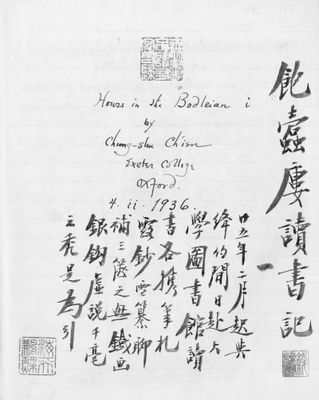 Hours in the Bodleian i
by
Chung-shu Ch'ien
Exeter College
Oxford.
4. ii. 1936.
飽蠹廔讀書記 一
廿五年二月起與
絳約間日赴大
學圖書館讀
書各攜筆札
露鈔雪纂聊
補三篋之無鐵畫
銀鉤虛說千毫
之禿是為引